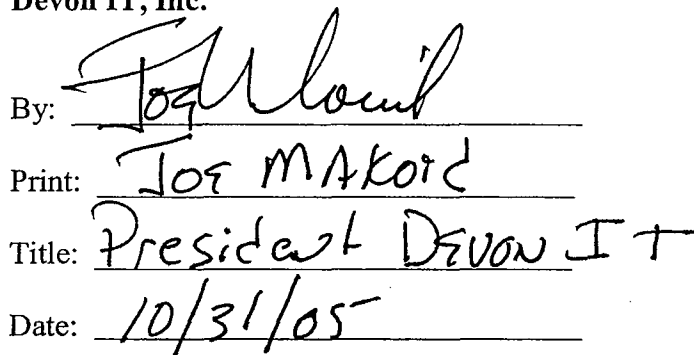 Devon IT, Inc.
By: Joe Makoid
Print: Joe MAKoid
Title: President DEVON IT
Date: 10/31/05